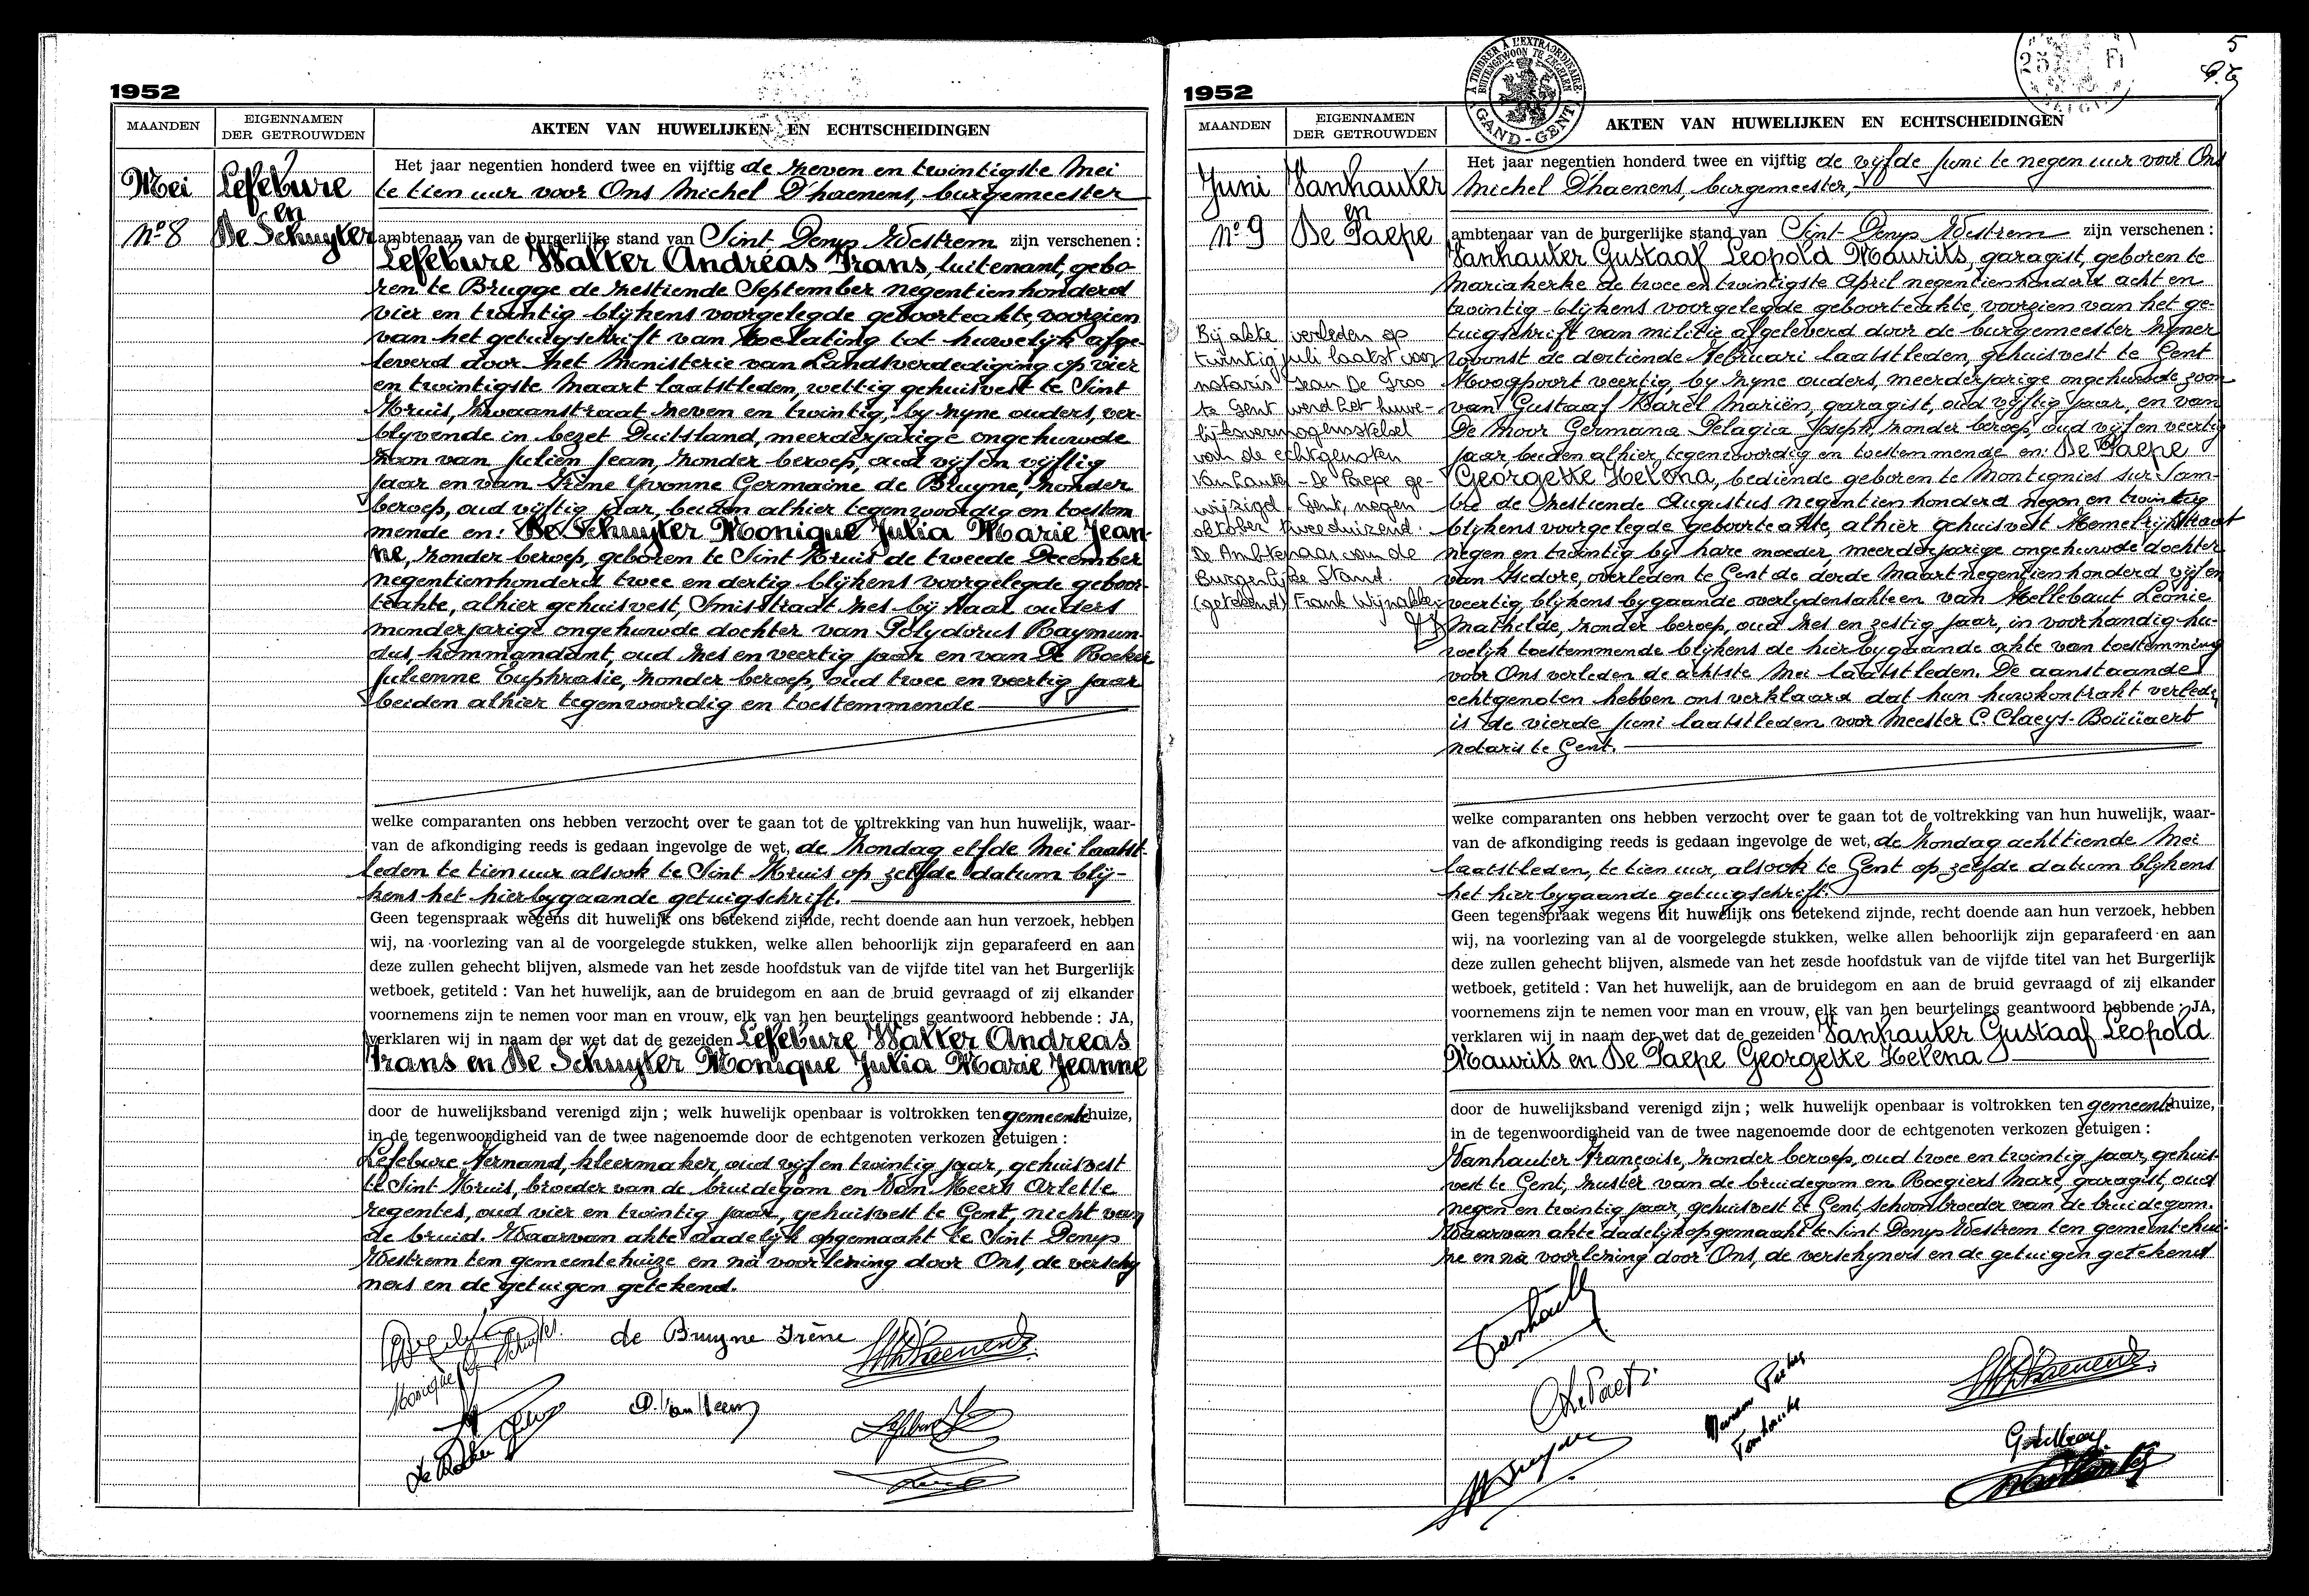 1952
MAANDEN
EIGENNAMEN
DER GETROUWDEN
AKTEN VAN HUWELIJKEN EN ECHTSCHEIDINGEN
Mei
Nº 8
Lefebure
en
De Schuyter
Het jaar negentien honderd twee en vijftig de zeven en twintigste Mei
te tien uur voor Ons Michel D'haenens, burgemeester
ambtenaar van de burgerlijke stand van Sint Denys Westrem zijn verschenen :
Lefebure Walter Andréas Frans, luitenant, gebo-
ren te Brugge de zestiende September negentienhonderd
vier en twintig blijkens voorgelegde geboorteakte, voorzien
van het getuigschrift van toelating tot huwelijk afge-
leverd door het Ministerie van Landsverdediging op vier
en twintigste Maart laatstleden, wettig gehuisvest te Sint
Kruis, Zwaanstraat zeven en twintig, by zyne ouders, ver-
blyvende in bezet Duitsland, meerderjarige ongehuwde
zoon van Julien Jean, zonder beroep, oud vijf en vijftig
jaar en van Irène Yvonne Germaine de Bruyne, zonder
beroep, oud vijftig jaar, beiden alhier tegenwoordig en toestem
mende en: De Schuyter Monique Julia Marie Jean-
ne, zonder beroep, geboren te Sint Kruis de tweede December
negentienhonderd twee en dertig blijkens voorgelegde geboor-
teakte, alhier gehuisvest, Smisstraat zes bij haar ouders
minderjarige ongehuwde dochter van Polydorus Raymun-
dus, kommandant, oud zes en veertig jaar en van De Rocker
Julienne Euphrasie, zonder beroep, oud twee en veertig jaar
beiden alhier tegenwoordig en toestemmende
welke comparanten ons hebben verzocht over te gaan tot de voltrekking van hun huwelijk, waar-
van de afkondiging reeds is gedaan ingevolge de wet, de zondag elfde Mei laatst-
leden te tien uur alsook te Sint Kruis op zelfde datum blij-
kens het hierbygaande getuigschrift.
Geen tegenspraak wegens dit huwelijk ons betekend zijnde, recht doende aan hun verzoek, hebben
wij, na voorlezing van al de voorgelegde stukken, welke allen behoorlijk zijn geparafeerd en aan
deze zullen gehecht blijven, alsmede van het zesde hoofdstuk van de vijfde titel van het Burgerlijk
wetboek, getiteld : Van het huwelijk, aan de bruidegom en aan de bruid gevraagd of zij elkander
voornemens zijn te nemen voor man en vrouw, elk van hen beurtelings geantwoord hebbende : JA,
verklaren wij in naam der wet dat de gezeiden Lefebure Walter Andreas
Frans en De Schuyter Monique Julia Marie Jeanne
door de huwelijksband verenigd zijn ; welk huwelijk openbaar is voltrokken ten gemeentehuize,
in de tegenwoordigheid van de twee nagenoemde door de echtgenoten verkozen getuigen :
Lefebure Fernand, kleermaker, oud vijf en twintig jaar, gehuisvest
te Sint Kruis, broeder van de bruidegom en Van Meers Arlette
regentes, oud vier en twintig jaar, gehuisvest te Gent, nicht van
de bruid. Waarvan akte dadelijk opgemaakt te Sint Denys
Westrem ten gemeentehuize en na voorlezing door Ons, de verschy
ners en de getuigen getekend.
de Bruyne Irène
1952
MAANDEN
EIGENNAMEN
DER GETROUWDEN
AKTEN VAN HUWELIJKEN EN ECHTSCHEIDINGEN
A TIMBRER A L'EXTRAORDINAIRE
BUITENGEWOON TE ZEGELEN
GAND-GENT
5
Juni
Nº 9
Vanhauter
en
De Paepe
Bij akte verleden op
twintig juli laatst voor
notaris Jean De Groo
te Gent werd het huwe-
lijksvermogensstelsel
van de echtgenoten
Vanhauter - De Paepe ge-
wijzigd. Gent, negen
oktober tweeduizend.
De Ambtenaar van de
Burgerlijke Stand.
(getekend) Frank Wijnakker
Het jaar negentien honderd twee en vijftig de vijfde Juni te negen uur voor Ons
Michel D'haenens, burgemeester,
ambtenaar van de burgerlijke stand van Sint-Denys Westrem zijn verschenen :
Vanhauter Gustaaf Leopold Maurits, garagist, geboren te
Mariakerke de twee en twintigste April negentienhonderd acht en
twintig blijkens voorgelegde geboorteakte, voorzien van het ge-
tuigschrift van militie afgeleverd door de burgemeester zyner
woonst de dertiende Februari laatstleden, gehuisvest te Gent
Hoogpoort veertig, by zyne ouders, meerderjarige ongehuwde zoon
van Gustaaf Karel Mariën, garagist, oud vijftig jaar, en van
De Moor Germana Pelagia Joseph, zonder beroep, oud vijf en veertig
jaar, beiden alhier tegenwoordig en toestemmende en: De Paepe
Georgette Helena, bediende geboren te Montignies sur Sam-
bre de zestiende Augustus negentienhonderd negen en twintig
blijkens voorgelegde geboorteakte, alhier gehuisvest Hemelrijkstraat
negen en twintig bij hare moeder, meerderjarige ongehuwde dochter
van Isidore, overleden te Gent de derde Maart negentienhonderd vijf en
veertig, blijkens bygaande overlydensakte en van Hellebaut Leonie
Mathilde, zonder beroep, oud zes en zestig jaar, in voorhandig hu-
welijk toestemmende blijkens de hierbygaande akte van toestemming
voor Ons verleden de achtste Mei laatstleden. De aanstaande
echtgenoten hebben ons verklaard dat hun huwkontrakt verleden
is de vierde Juni laatstleden voor Meester C. Claeys-Boüüaert
notaris te Gent.
welke comparanten ons hebben verzocht over te gaan tot de voltrekking van hun huwelijk, waar-
van de afkondiging reeds is gedaan ingevolge de wet, de zondag achttiende Mei
laatstleden, te tien uur, alsook te Gent op zelfde datum blijkens
het hierbygaande getuigschrift.
Geen tegenspraak wegens dit huwelijk ons betekend zijnde, recht doende aan hun verzoek, hebben
wij, na voorlezing van al de voorgelegde stukken, welke allen behoorlijk zijn geparafeerd en aan
deze zullen gehecht blijven, alsmede van het zesde hoofdstuk van de vijfde titel van het Burgerlijk
wetboek, getiteld : Van het huwelijk, aan de bruidegom en aan de bruid gevraagd of zij elkander
voornemens zijn te nemen voor man en vrouw, elk van hen beurtelings geantwoord hebbende : JA,
verklaren wij in naam der wet dat de gezeiden Vanhauter Gustaaf Leopold
Maurits en De Paepe Georgette Helena
door de huwelijksband verenigd zijn ; welk huwelijk openbaar is voltrokken ten gemeentehuize,
in de tegenwoordigheid van de twee nagenoemde door de echtgenoten verkozen getuigen :
Vanhauter Françoise, zonder beroep, oud twee en twintig jaar, gehuis-
vest te Gent, zuster van de bruidegom en Roegiers Marc, garagist, oud
negen en twintig jaar, gehuisvest te Gent, schoonbroeder van de bruidegom.
Waarvan akte dadelijk opgemaakt te Sint Denys Westrem ten gemeentehui-
ze en na voorlezing door Ons, de verschyners en de getuigen getekend